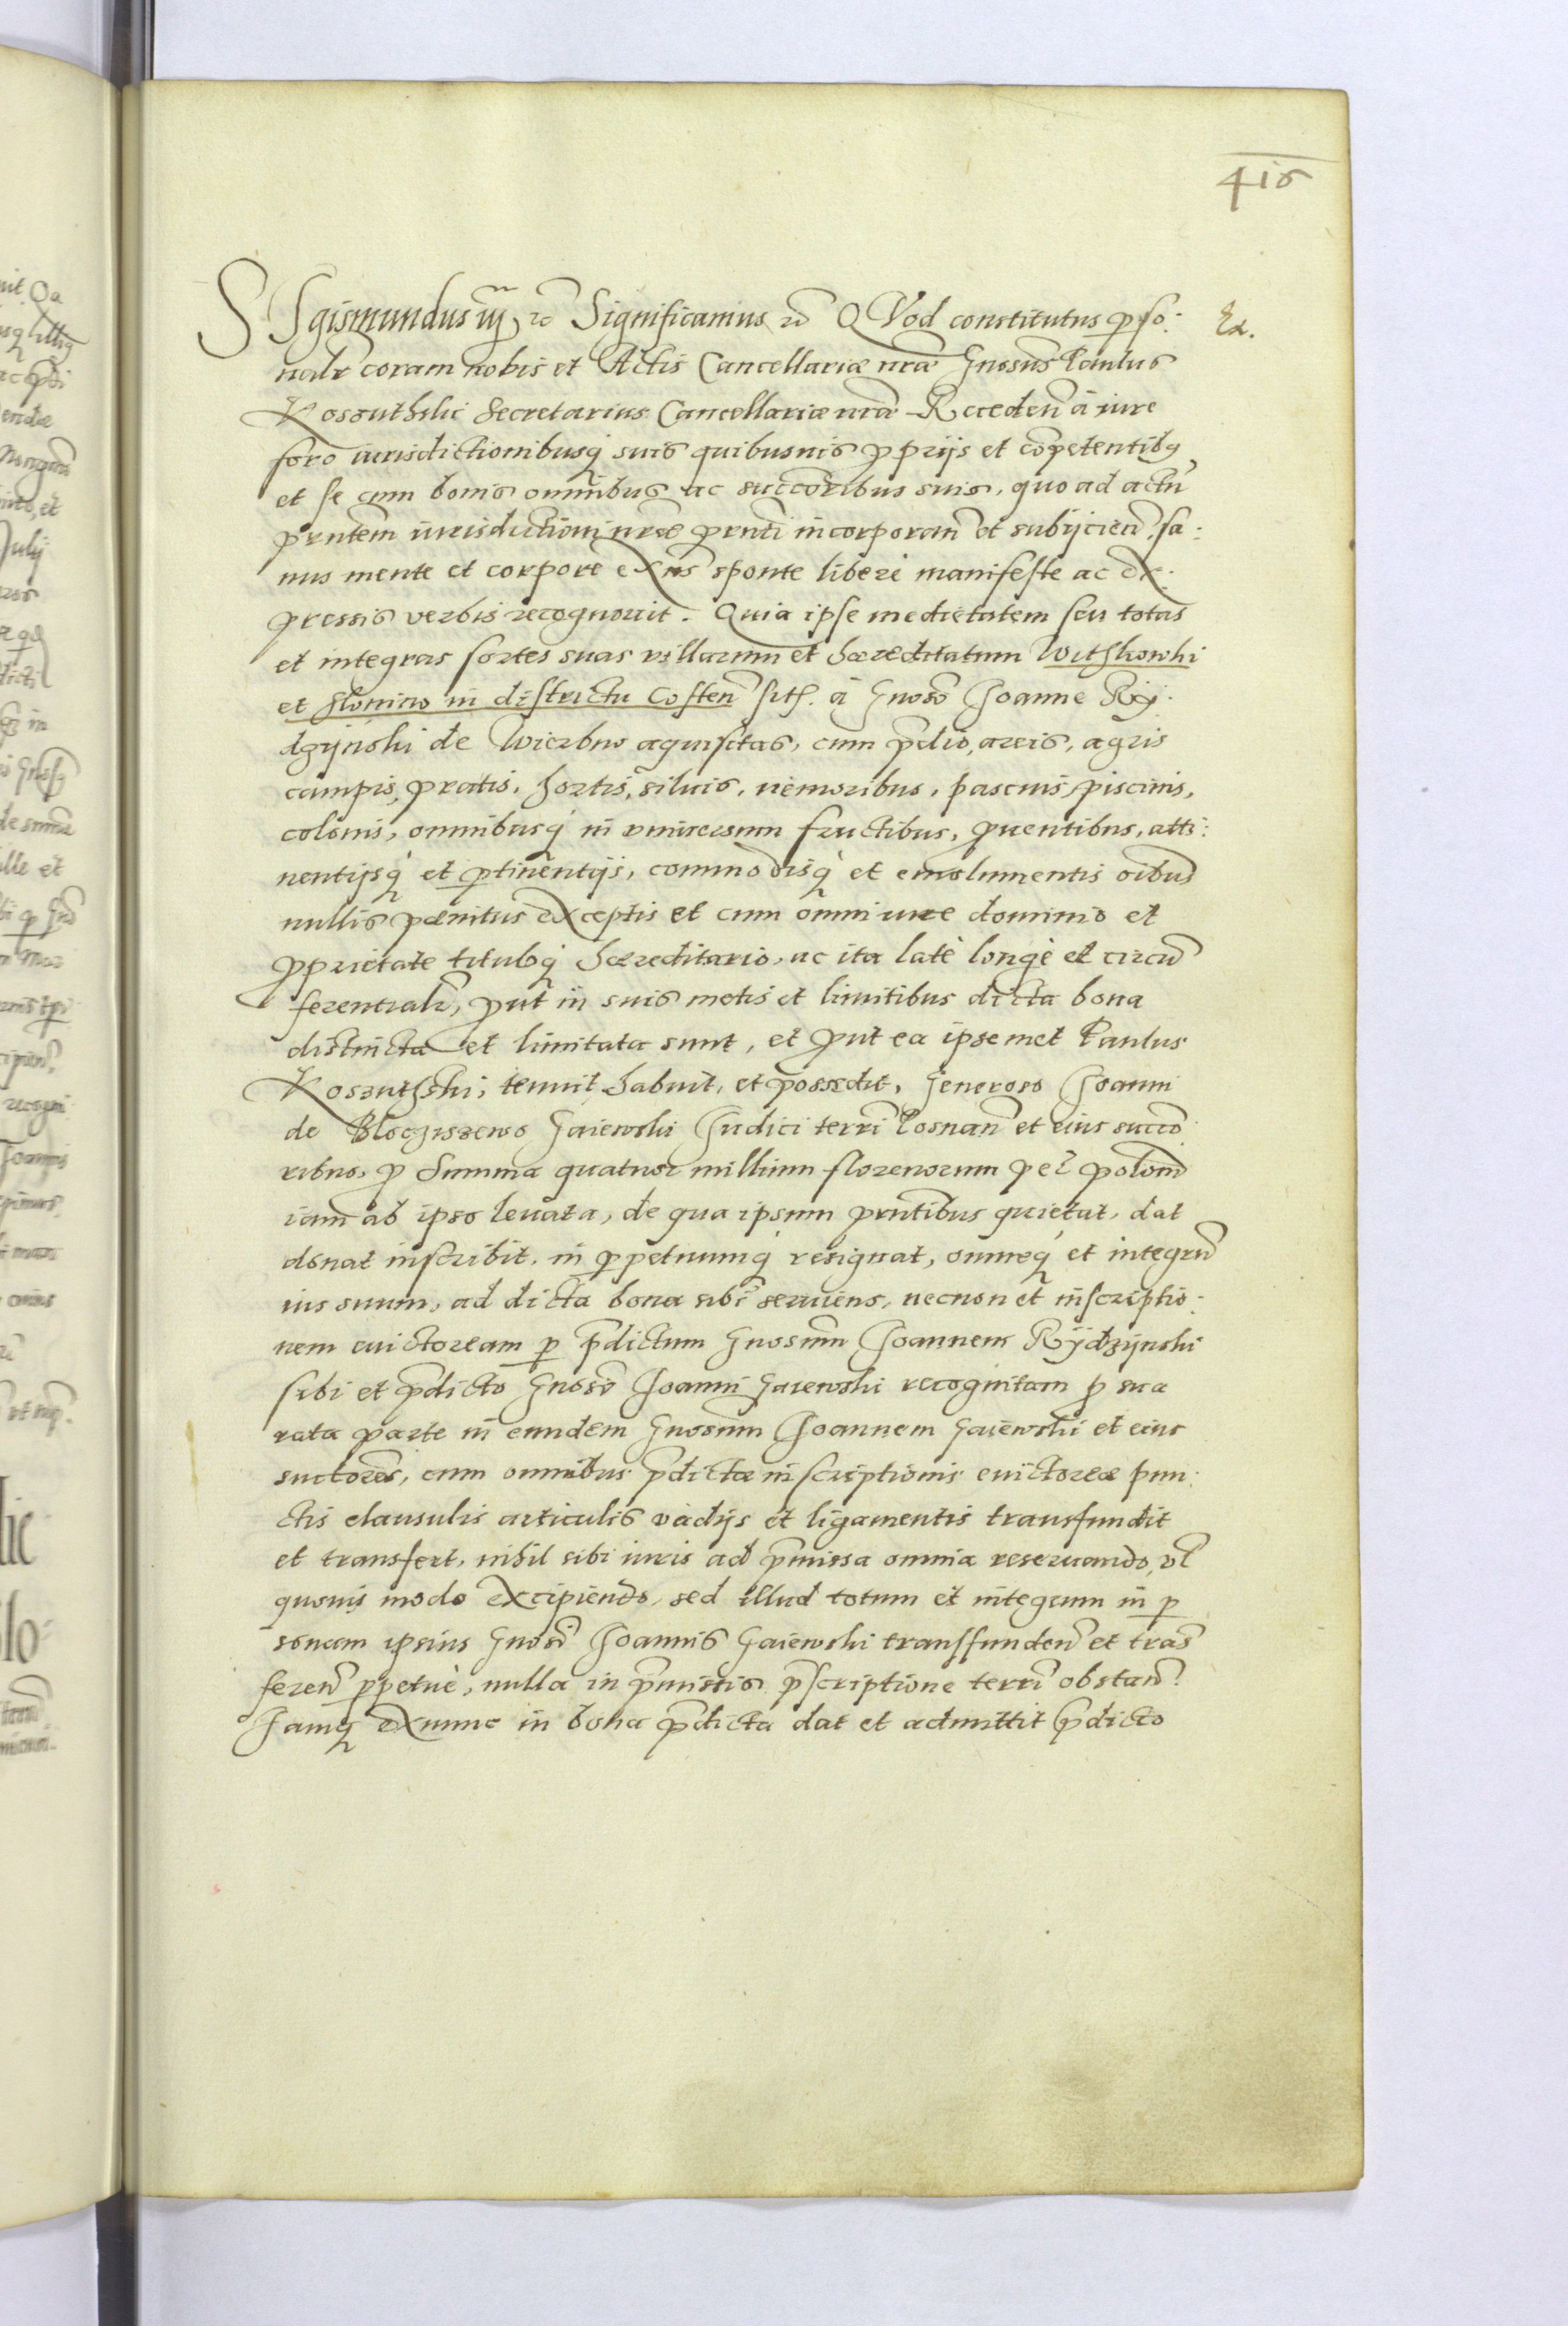 416
SIgismundus iij, &c Significamus &c QVod constitutus p̱so:
Ex.
nalr̃ coram nobis et Actis Cancellariæ nr̃æ Gnosus Paulus
Koszuthski Secretarius Cancellariæ nr̃æ Receden̄ à iure
foro iurisdictionibusq́ suis quibusuis ꝓprijs et cõpetentibq
et se cum bonis omnibus ac succõribus suis, quo ad actũ
prñtem iurisdictioni nr̃æ prñti incorporan̄ et subijcien̄, sa:
nus mente et corpore exn̄s sponte liberè manifeste ac ex:
pressis verbis recognouit. Quia ipse medietatem seu totas
et integras sortes suas villarum et hæreditatum Witkowki
et Slonino in districtu Costen̄ sitꝭ. à Gnoso Joanne Rÿ:
dzÿnski de Wierbno aquisitas, cum p̃dio, areis, agris
campis, pratis, hortis, siluis, nemoribus, pascuis, piscinis,
colonis, omnibusq́ in vniuersum fructibus, ꝓuentibus, atti:
nentijsq́ et p̱tinentijs, commodisq́ et emolumentis oĩbus
nullis pænitus exceptis et cum omni iure dominio et
ꝓprietate tituloq́ hæreditario, ac ita latè longè et circũ
ferentialr̃, ꝓut in suis metis et limitibus dicta bona
distincta et limitata sunt, et ꝓut ea ipsemet Paulus
Koszuthski, tenuit habuit, et possedit, Generoso Joanni
de Blociszewo Gaiewski Judici terrĩ Posnan̄ et eius succõ
ribus, ꝓ Summa quatuor millium florenorum pecꝭ polonĩ
iam ab ipso leuata, de qua ipsum prñtibus quietat, dat
donat inscribit, in p̱petuumq́ resignat, omneq́ et integrũ
ius suum, ad dicta bona sibi seruiens, necnon et inscriptio:
nem euictoream p̱ p̃dictum Gnosum Joannem Rÿdzÿnski
sibi et p̃dicto Gnoso Joanni Gaiewski recognitam ꝓ sua
rata parte in eundem Gnosum Joannem Gaiewski et eius
succõres, cum omnibus p̃dictæ inscriptionis euictoreæ pun:
ctis clausulis articulis vadijs et ligamentis transfundit
et transfert, nihil sibi iuris ad p̃missa omnia reseruando, vl̃
quouis modo excipiendo, sed illud totum et integrum in p̱
sonam ipsius Gnosi Joannis Gaiewski transfunden̄ et trãs
feren̄ p̱petuè, nulla in p̃missis p̃scriptione terrĩ obstan̄.
Jamq́ ex nunc in bona p̃dicta dat et admittit p̃dicto